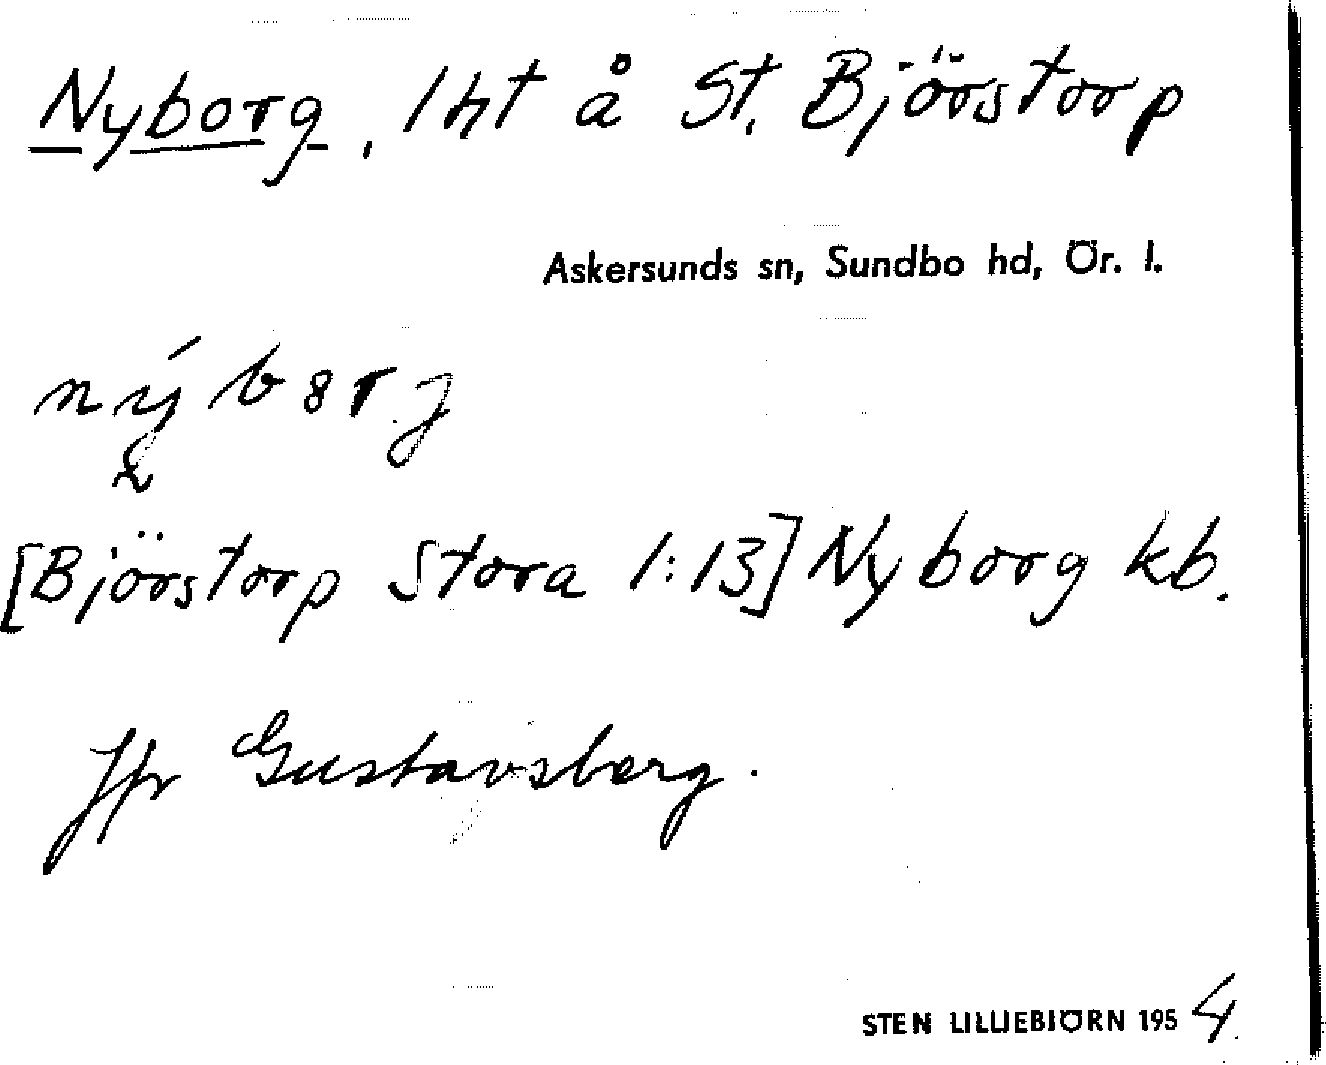 Nyborg, lht å St. Björstorp
Askersunds sn, Sundbo hd, Ör. l.
[Björstorp Stora 1:13] Nyborg kb.
Jfr Gustavsberg.
STEN LILLIEBJÖRN 1954